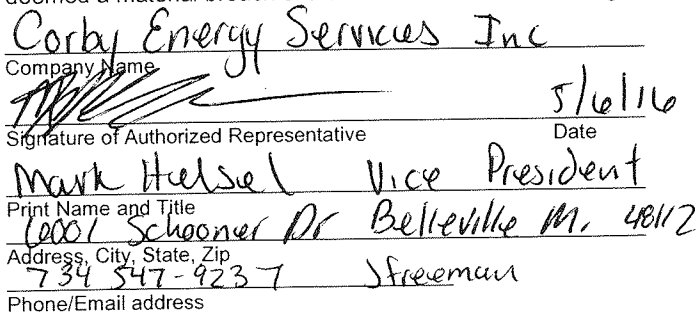 Corby Energy Services Inc
Company Name
5/6/16
Signature of Authorized Representative Date
Mark Helsel Vice President
Print Name and Title
6001 Schooner Dr Belleville Mi 48112
Address, City, State, Zip
734 547-9237 Jfreeman
Phone/Email address